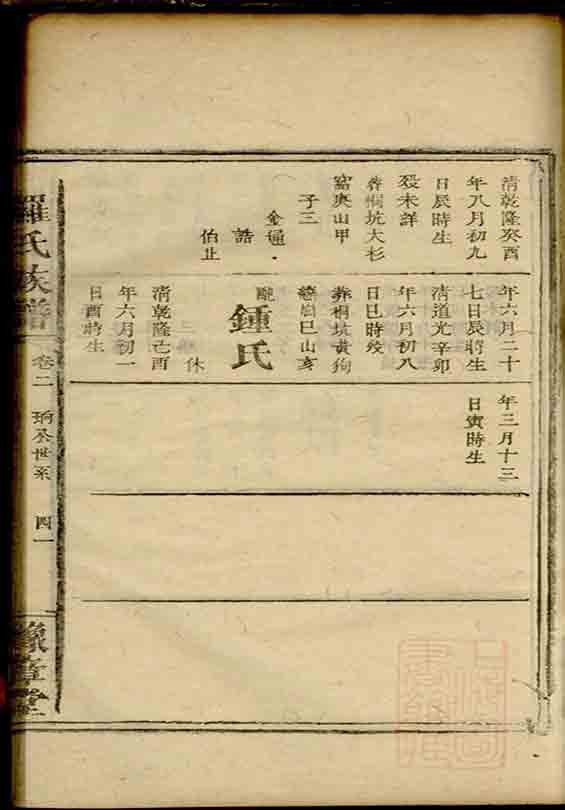 清乾隆癸酉
年八月初九
日辰時生
歿未詳
葬桐坑大杉
窩庚山甲
子三
金通
誥
伯止
年六月二十
七日辰時生
清道光辛卯
年六月初八
日巳時歿
葬桐坑黃狗
巳山亥
配
鍾氏
清乾隆己酉
年六月初一
日酉時生
休
年三月十三
日寅時生
羅氏族譜
卷二
公世系
四一
豫章堂